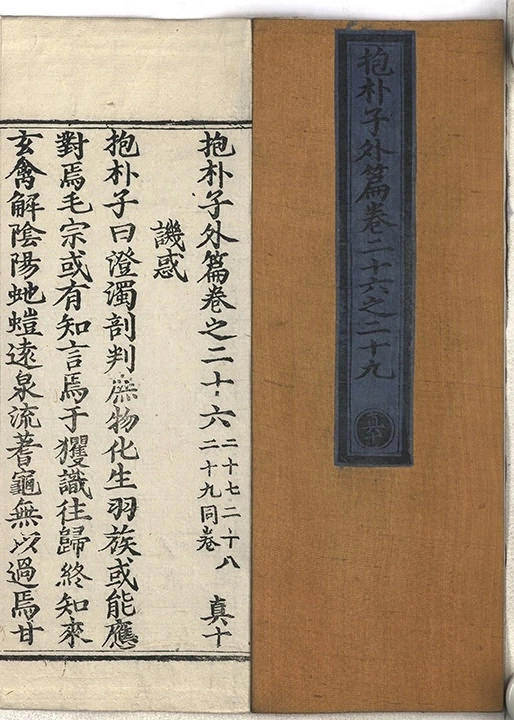 抱朴子外篇卷二十六之二十九
真十
抱朴子外篇卷之二十六
二十七二十八
二十九同卷
真十
譏惑
抱朴子曰澄濁剖判庶物化生羽族或能應
對焉毛宗或有知言焉于玃識往歸終知來
玄禽解陰陽虵螘遠泉流蓍龜無以過焉甘